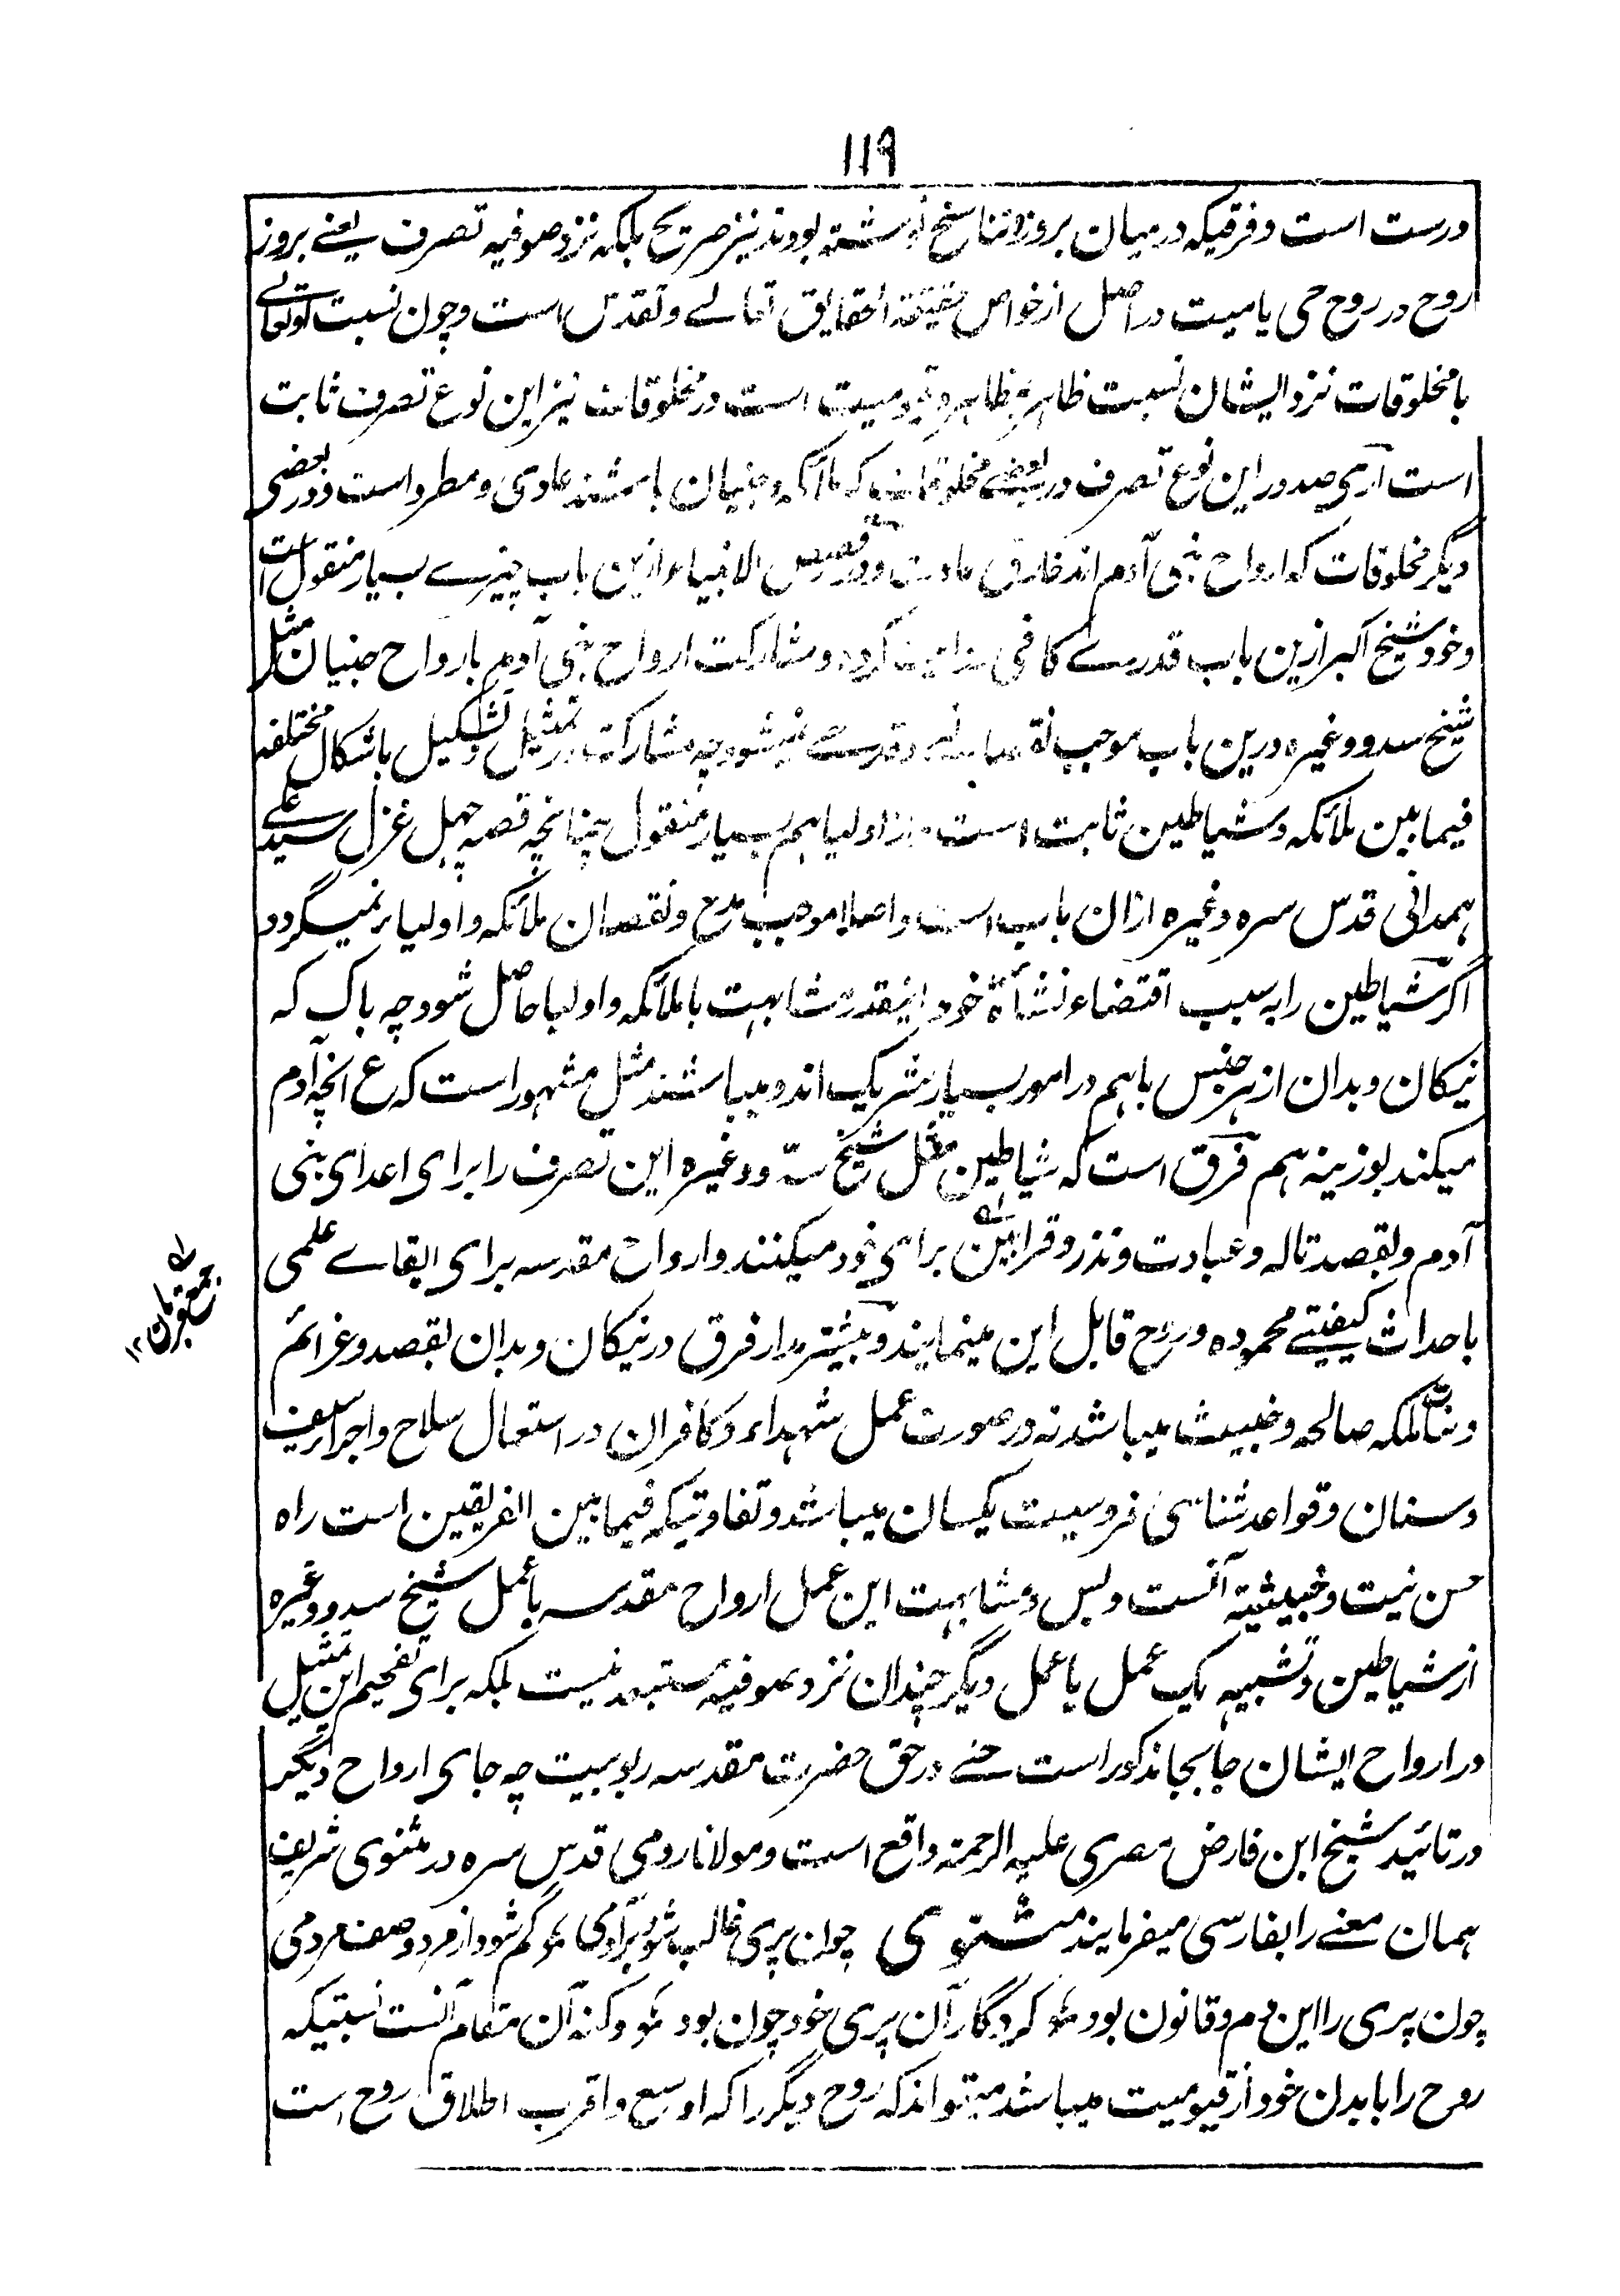 ۱۱۹
درست است و فرقیکه درمیان بروز و تناسخ نوشته بودند نیز صریح بلکه نزد صوفیه تصرف یعنے بروز
روح در روح حی یا میت در اصل از خواص حقیقة الحقایق تعالے و تقدس است و چون نسبت او تعالے
با مخلوقات نزد ایشان نسبت ظاہر بمظاہر و قیومیت است در مخلوقات نیز این نوع تصرف ثابت
است آری صدور این نوع تصرف در بعضے مخلوقات که ملائکه و جنیان باشند عادی و مطرد است و در بعضی
دیگر مخلوقات که ارواح بنی آدم اند خارق عادت و در قصص الانبیاء ازین باب چیزے بسیار منقول است
و خود شیخ اکبر ازین باب قدرے کافی روایت کرده و مشارکت ارواح بنی آدم با رواح جنیان مثل
شیخ سدو و غیره درین باب موجب نمیشود چه مشارکت در تمثیل و تشکیل باشکال مختلفه
فیمابین ملائکه و شیاطین ثابت است و از اولیا ہم بسیار منقول چنانچه قصه چہل غزل سید علے
ہمدانی قدس سره و غیره ازان باب است و اصلا موجب قدح و نقصان ملائکه و اولیا نمیگردد
اگر شیاطین را به سبب اقتضاء نشأة خود اینقدر مشابہت با ملائکه و اولیا حاصل شود چه باک که
نیکان و بدان از ہر جنس باہم در امور بسیار شریک اند و میباشند مثل مشہور است که ع آنچه آدم
میکند بوزینه ہم فرق است که شیاطین مثل شیخ سدو و غیره این تصرف را برای اعدای بنی
آدم و بقصد تاله و عبادت و نذر و قرابین برای خود میکنند و ارواح مقدسه برای القاے علمی
باحداث کیفیتے محموده در روح قابل این مینمایند و بیشتر مدار فرق در نیکان و بدان بقصد و عزائم
و نیات ملکه صالحه و خبیث میباشد نه در صورت عمل شہداء و کافران در استعمال سلاح و اجراء سیف
و سنان و قواعد شناسی فروسیت یکسان میباشد و تفاوتیکه فیمابین الفریقین است راه
حسن نیت و خبیثیة آنست و بس و مشابہت این عمل ارواح مقدسه با عمل شیخ سدو و غیره
از شیاطین و تشبیه یک عمل با عمل دیگر چندان نزد صوفیه مستبعد نیست بلکه برای تفہیم این تمثیل
در ارواح ایشان جا بجا مذکور است حتے در حق حضرت مقدسه ربوبیت چه جای ارواح دیگر
در تائید شیخ ابن فارض مصری علیه الرحمة واقع است و مولانا رومی قدس سره در مثنوی شریف
ہمان معنے را بفارسی میفرمایند مثنوی چون پری غالب شود بر آدمی ٭ گم شود از مرد وصف مردمی
چون پری را این دم و قانون بود ٭ کردگار آن پری خود چون بود ٭ و کنه آن مقام آنست نسبتیکه
روح را با بدن خود از قیومیت میباشد میتواند که روح دیگر را که اوسع و اقرب اطلاق روح است
جمع قربان ۱۲